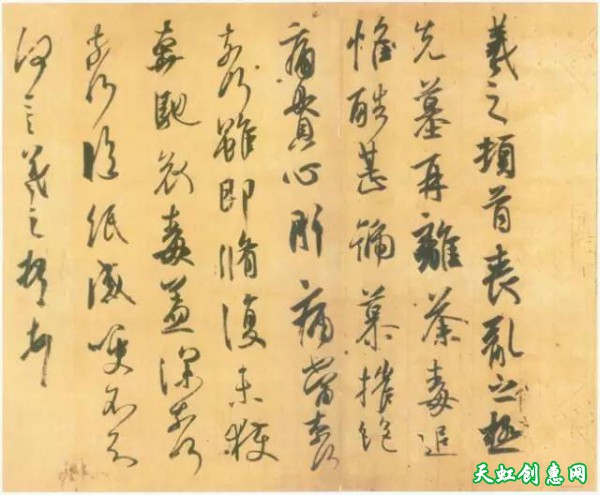 羲之頓首喪亂之極
先墓再離荼毒追
惟酷甚號慕摧絕
痛貫心肝痛當奈何
奈何雖即脩復未獲
奔馳哀毒益深奈何
奈何臨紙感哽不知
何言羲之頓首頓首
天虹创惠网